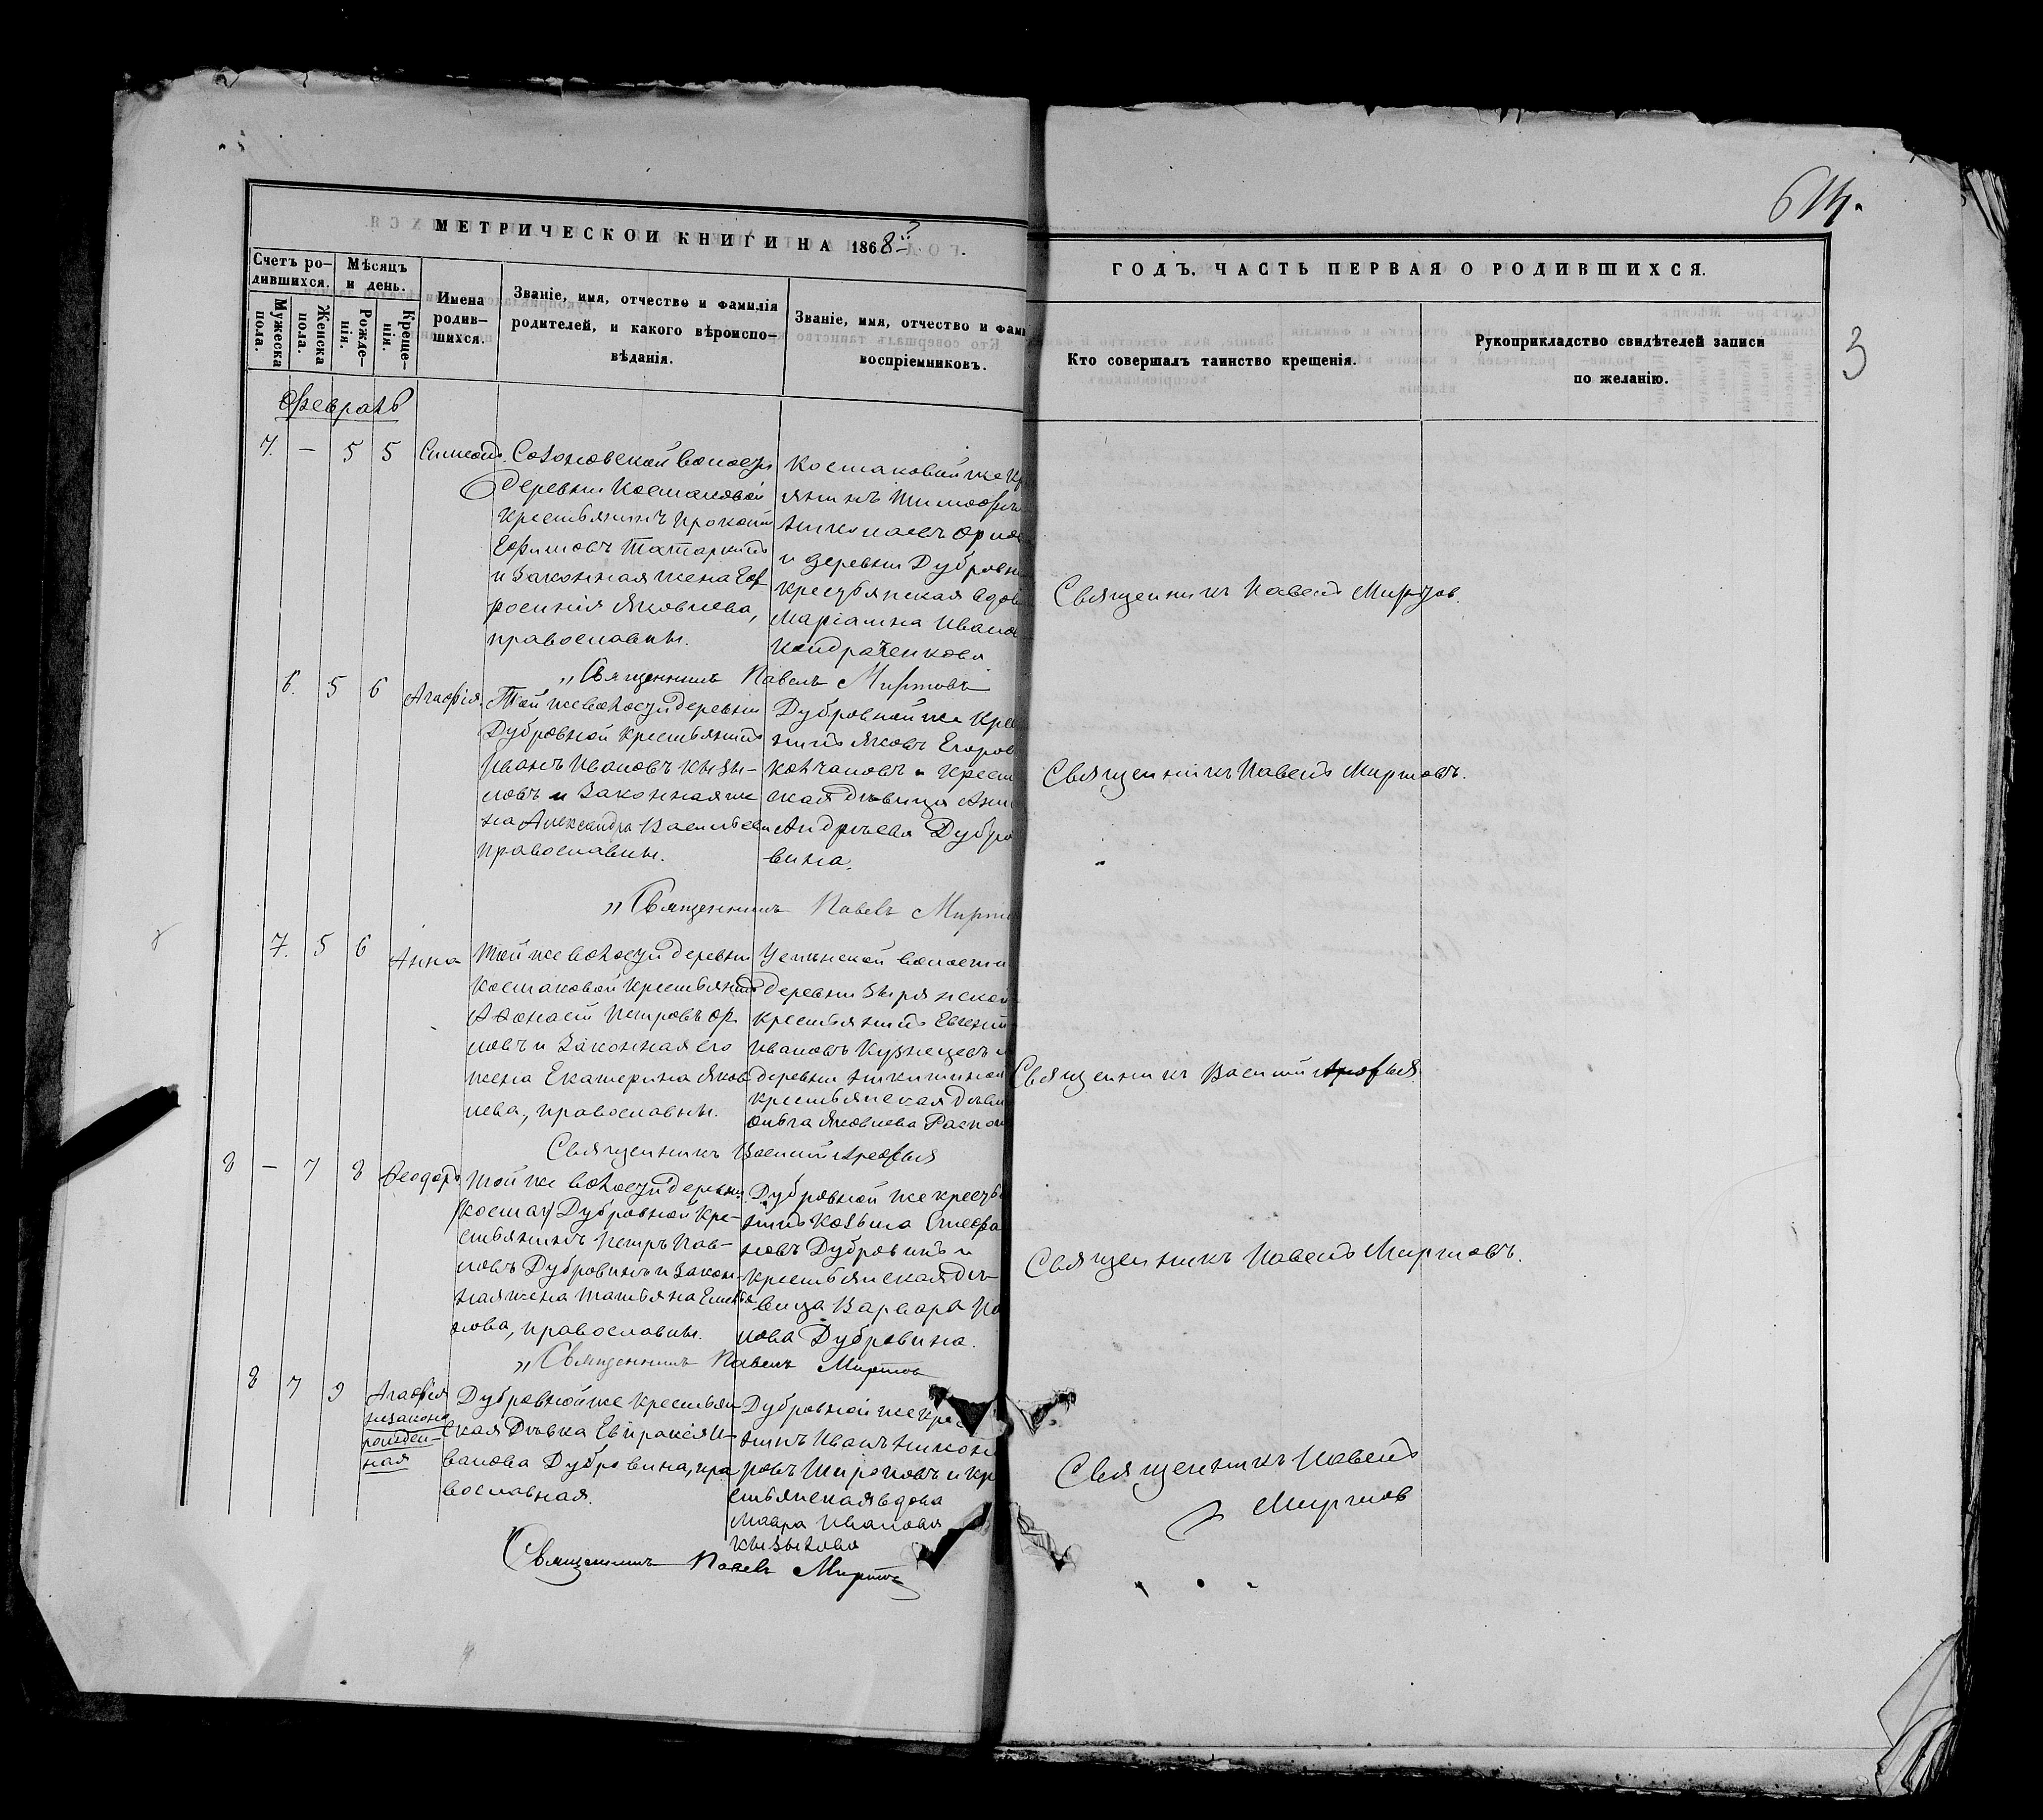 614.
3
МЕТРИЧЕСКОЙ КНИГИ НА 1868
ГОДЪ. ЧАСТЬ ПЕРВАЯ О РОДИВШИХСЯ.
Счетъ ро-
дившихся.
Мужеска
пола.
Женска
пола.
Мѣсяцъ
и день.
Рожде-
нія.
Креще-
нія.
Имена
родив-
шихся.
Званіе, имя, отчество и фамилія
родителей, и какого вѣроиспо-
вѣданія.
Званіе, имя, отчество и фами
воспріемниковъ.
Кто совершалъ таинство крещенія.
Рукоприкладство свидѣтелей записи
по желанію.
Февраль
7. — 5 5 Симеонъ.
Созоновской волости
деревни Костаковой
крестьянинъ Прокопій
Ефимовъ Татаркинъ
и законная жена Евф
росинія Яковлева,
православны.
Костаковой же кр
янинъ Тимофей
Николаевъ Орло
и деревни Дубровн
крестьянская вдов
Маріамна Иванов
Кондраченкова
Священникъ Павелъ Миртов.
„Священникъ Павелъ Миртовъ
6. 5 6 Агафія.
Той же волости деревни
Дубровной крестьянинъ
Иванъ Ивановъ Кызы-
ловъ и законная же
на Александра Васильева
православны.
Дубровной же кре
нинъ Яковъ Егоров
Колчановъ и крест
ская дѣвица Анн
Андреева Дубро
вина.
Священникъ Павелъ Миртовъ.
„Священникъ Павелъ Мирто
7. 5 6 Анна
Той же волости деревни
Костаковой крестьянинъ
Афонасій Петровъ Ор
ловъ и законная его
жена Екатерина Яков
лева, православны.
Успѣнской волости
деревни Зырянской
крестьянинъ Евгеній
Ивановъ Кузнецовъ и
деревни Никитиной
крестьянская дѣви
Ольга Яковлева
Священникъ Василій Арефьев
Священникъ Василій Арефьев
8 — 7 8 Феодоръ
Той же волости деревни
Дубровной кре-
стьянинъ Петръ Пав-
ловъ Дубровинъ и закон-
ная жена Татьяна Емелья
нова, православны.
Дубровной же кресть
нинъ Козьма Стефа
новъ Дубровинъ и
крестьянская дѣ-
вица Варвара Па
лова Дубровина.
Священникъ Павелъ Миртовъ.
„Священникъ Павелъ Миртов
8 7 9 Агафія
незаконо
рожден-
ная
Дубровной же крестьян
ская дѣвка Евпраксія И-
ванова Дубровина, пра
вославная.
Дубровной же крес
нинъ Иванъ Никон
ровъ Широковъ и кр
стьянская вдова
Мавра Иванова
Кызылова
Священникъ Павелъ
Миртов
Священникъ Павелъ Миртовъ